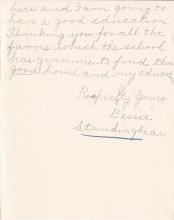 here and I am going to
have a good education
Thanking you for all the
favors which the school
has given me to find this
good home and my educa
Respectfly Yours
Bessie
Standingbear